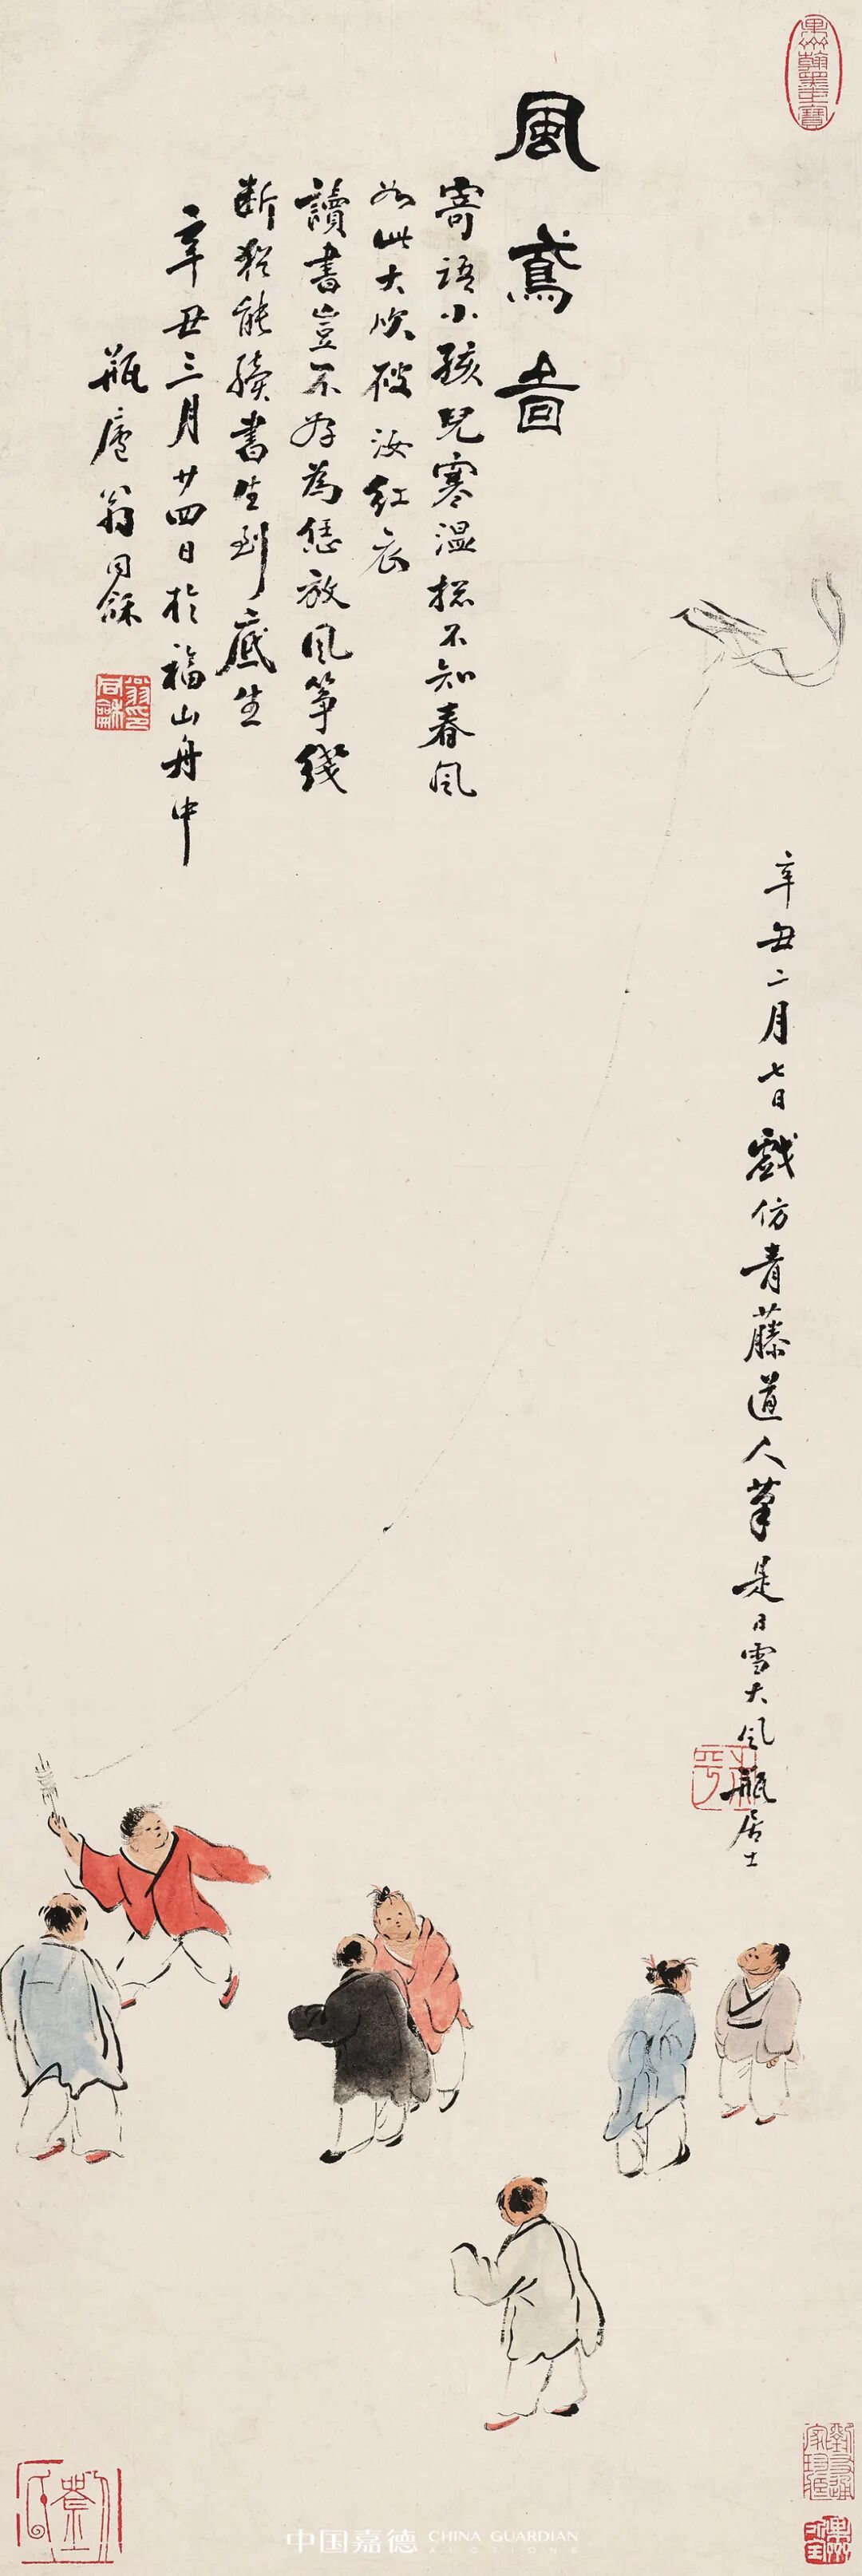 風鳶啚
寄語小孩兒寒温捴不知春風
如此大吹破汝紅衣
讀書豈不好為恁放風箏綫
断猶能續書生到底生
辛丑三月廿四日於福山舟中
瓶廬翁同龢
翁同龢印
辛丑二月七日戲仿青藤道人筆是日雪大風瓶居士
中国嘉德 CHINA GUARDIAN
AUCTION